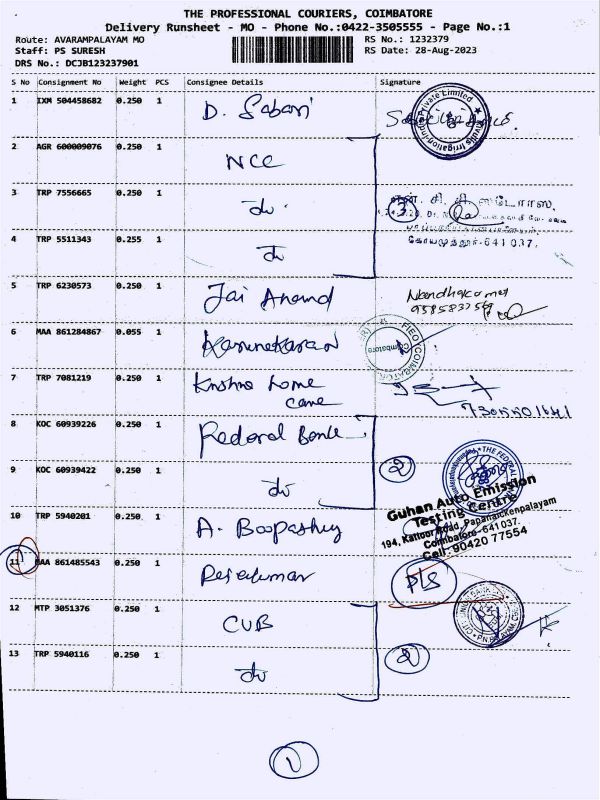 THE PROFESSIONAL COURIERS, COIMBATORE
Delivery Runsheet - MO - Phone No.:0422-3505555 - Page No.:1
Route: AVARAMPALAYAM MO RS No.: 1232379
Staff: PS SURESH RS Date: 28-Aug-2023
DRS No.: DCJB123237901
S No Consignment No Weight PCS Consignee Details Signature
1 IXM 504458682 0.250 1 D. Sabari
Private Limited
2 AGR 600009076 0.250 1 NCC
3 TRP 7556665 0.250 1 do 3
என். சி. சி ஸ்டோரஸ்
4 TRP 5511343 0.255 1 do
கோயமுத்தூர்-641 037.
5 TRP 6230573 1 Jai Anand
6 MAA 861284867 0.055 1 Karunakaran
FIEO COIMBATORE
Coimbatore
7 TRP 7081219 0.250 1 Krishna home
care
8 KOC 60939226 0.250 1 Federal Bank
2
THE FEDERAL
9 KOC 60939422 0.250 1 do
10 TRP 5940201 0.250 1 A. Boopathy
Guhan Auto Emission
Testing Centre
194, Kattoor Road, Papanaickenpalayam
Coimbatore-641 037.
Cell: 90420 77554
11 MAA 861485543 0.250 1 Rajakumar
12 MTP 3051376 0.250 1 CUB
13 TRP 5940116 0.250 1 do 2
1